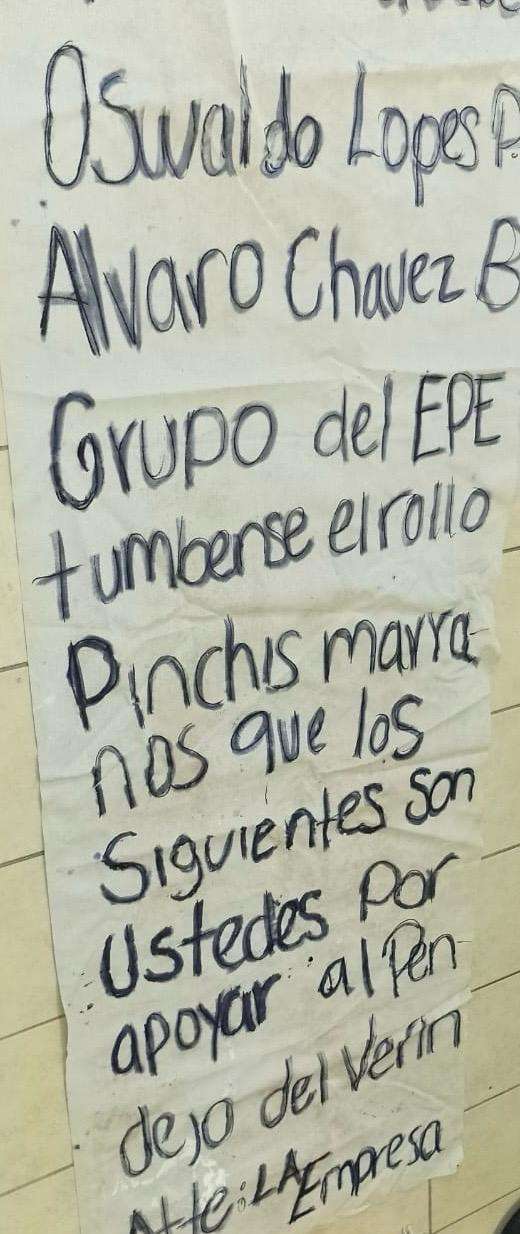 Oswaldo Lopes P.
Alvaro Chavez B
Grupo del EPE
tumbense el rollo
Pinchis marra-
nos que los
Siguientes son
Ustedes por
apoyar al Pen-
dejo del Verin
Atte: LA Empresa